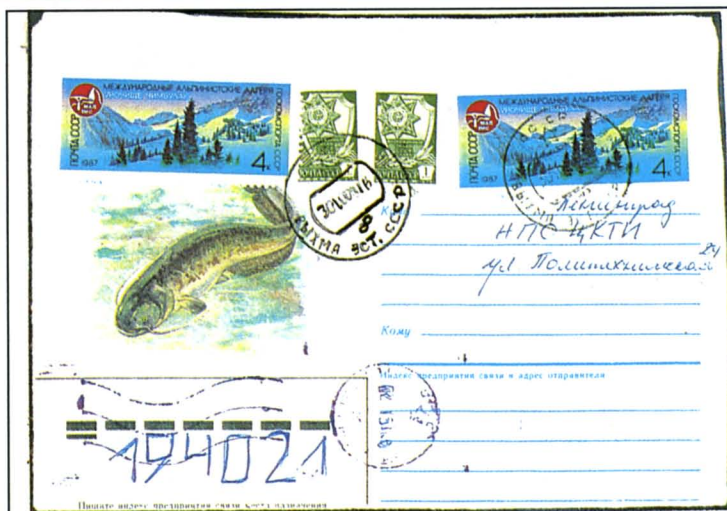 МЕЖДУНАРОДНЫЕ АЛЬПИНИСТСКИЕ ЛАГЕРЯ
ГОСКОМСПОРТА СССР
ПОЧТА СССР
1987
4к
1
1
МЕЖДУНАРОДНЫЕ АЛЬПИНИСТСКИЕ ЛАГЕРЯ
ГОСКОМСПОРТА СССР
ПОЧТА СССР
1987
4к
ВЫХМА ЭСТ. СССР
8
Ленинград
НПО ЦКТИ
ул Политехническая 24
Кому
Индекс предприятия связи и адрес отправителя
194021
Пишите индекс предприятия связи места назначения